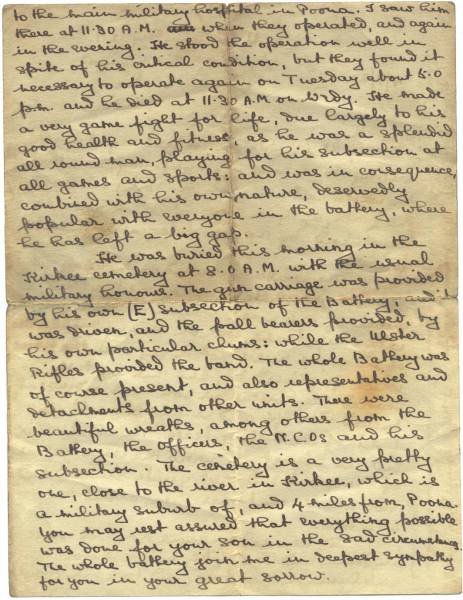 to the main military hospital in Poona. I saw him
there at 11.30 A.M. when they operated, and again
in the evening. He stood the operation well in
spite of his critical condition, but they found it
necessary to operate again on Tuesday about 5.0
p.m. and he died at 11.30 A.M on Wdy. He made
a very game fight for life, due largely to his
good health and fitness, as he was a splendid
all round man, playing for his subsection at
all games and sports: and was in consequence,
combined with his own nature, deservedly
popular with everyone in the battery, where
he has left a big gap.
He was buried this morning in the
Kirkee cemetery at 8.0 A.M. with the usual
military honours. The gun carriage was provided
by his own (E) subsection of the Battery, and
was driven, and the pall bearers provided, by
his own particular chums: while the Ulster
Rifles provided the band. The whole Battery was
of course present, and also representatives and
detachments from other units. There were
beautiful wreaths, among others from the
Battery, the officers, the N.C.Os and his
subsection. The cemetery is a very pretty
one, close to the river in Kirkee, which is
a military suburb of, and 4 miles from, Poona.
You may rest assured that everything possible
was done for your son in the sad circumstances.
The whole battery join me in deepest sympathy
for you in your great sorrow.